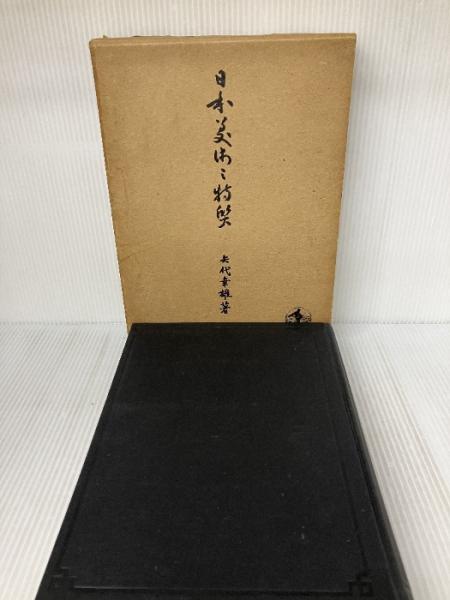 日本美術之特質
矢代幸雄著